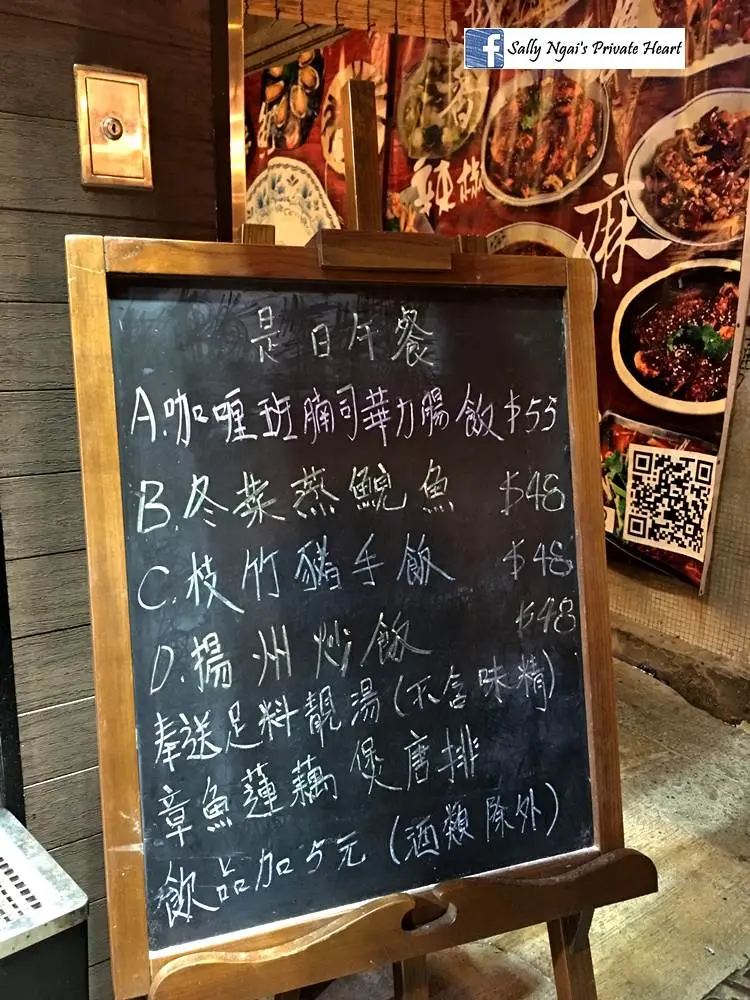 f Sally Ngai's Private Heart
香
辣椒
麻
是日午餐
A.咖喱班腩司華力腸飯$55
B.冬菜蒸鯇魚 $48
C.枝竹豬手飯 $48
D.揚州炒飯 $48
奉送足料靚湯(不含味精)
章魚蓮藕煲唐排
飲品加5元(酒類除外)